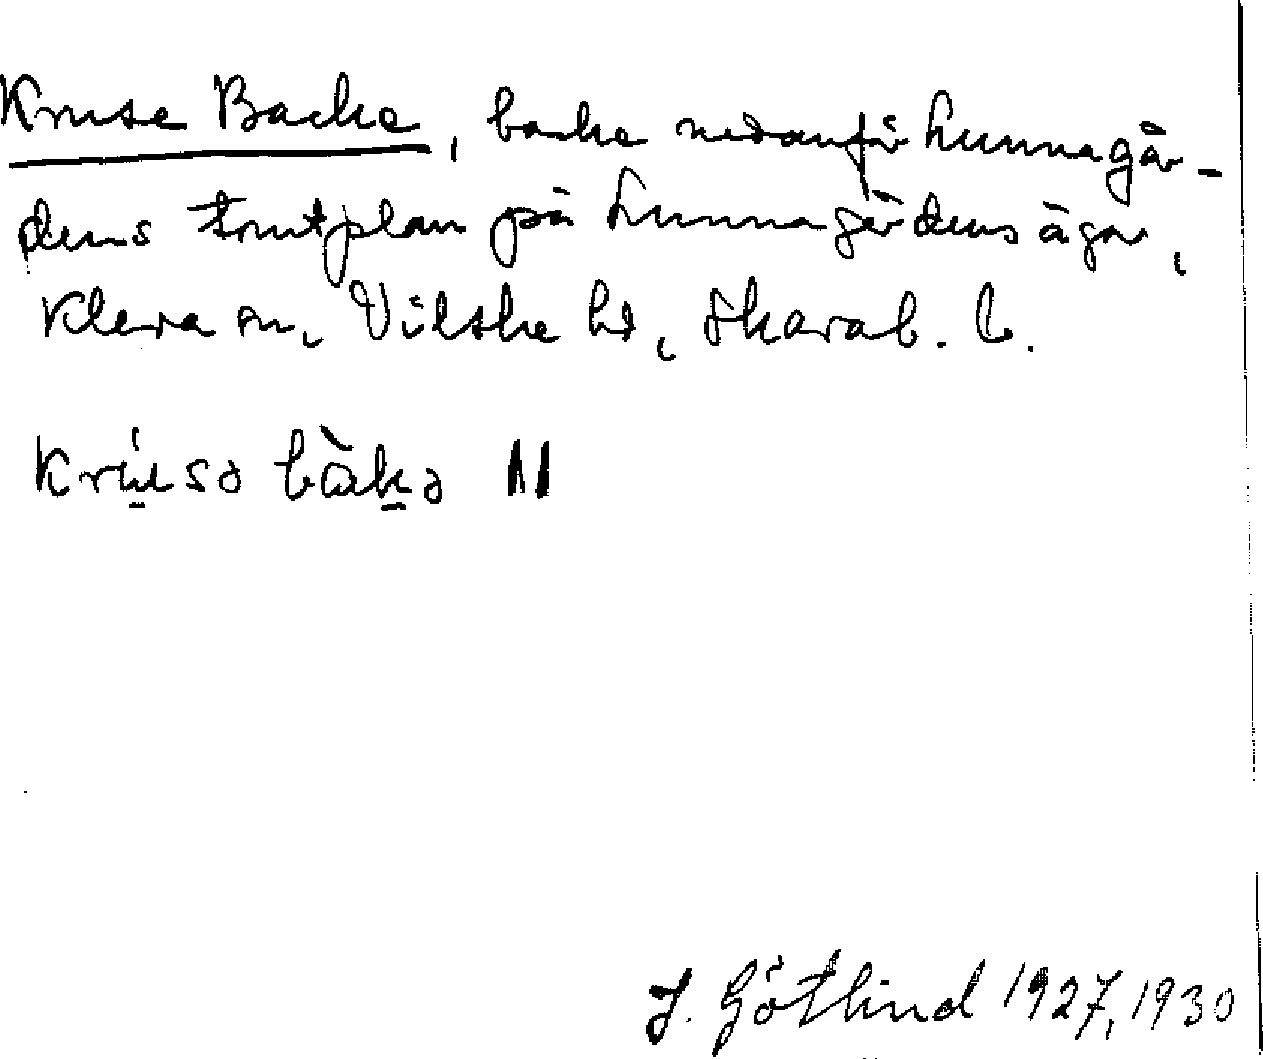 Kruse Backe, backe nedanför Lunnagår-
dens tomtplan på Lunnagårdens ägor,
Kleva sn, Vilske hd, Skarab. l.
krúsə bàkə II
J. Götlind 1927, 1930